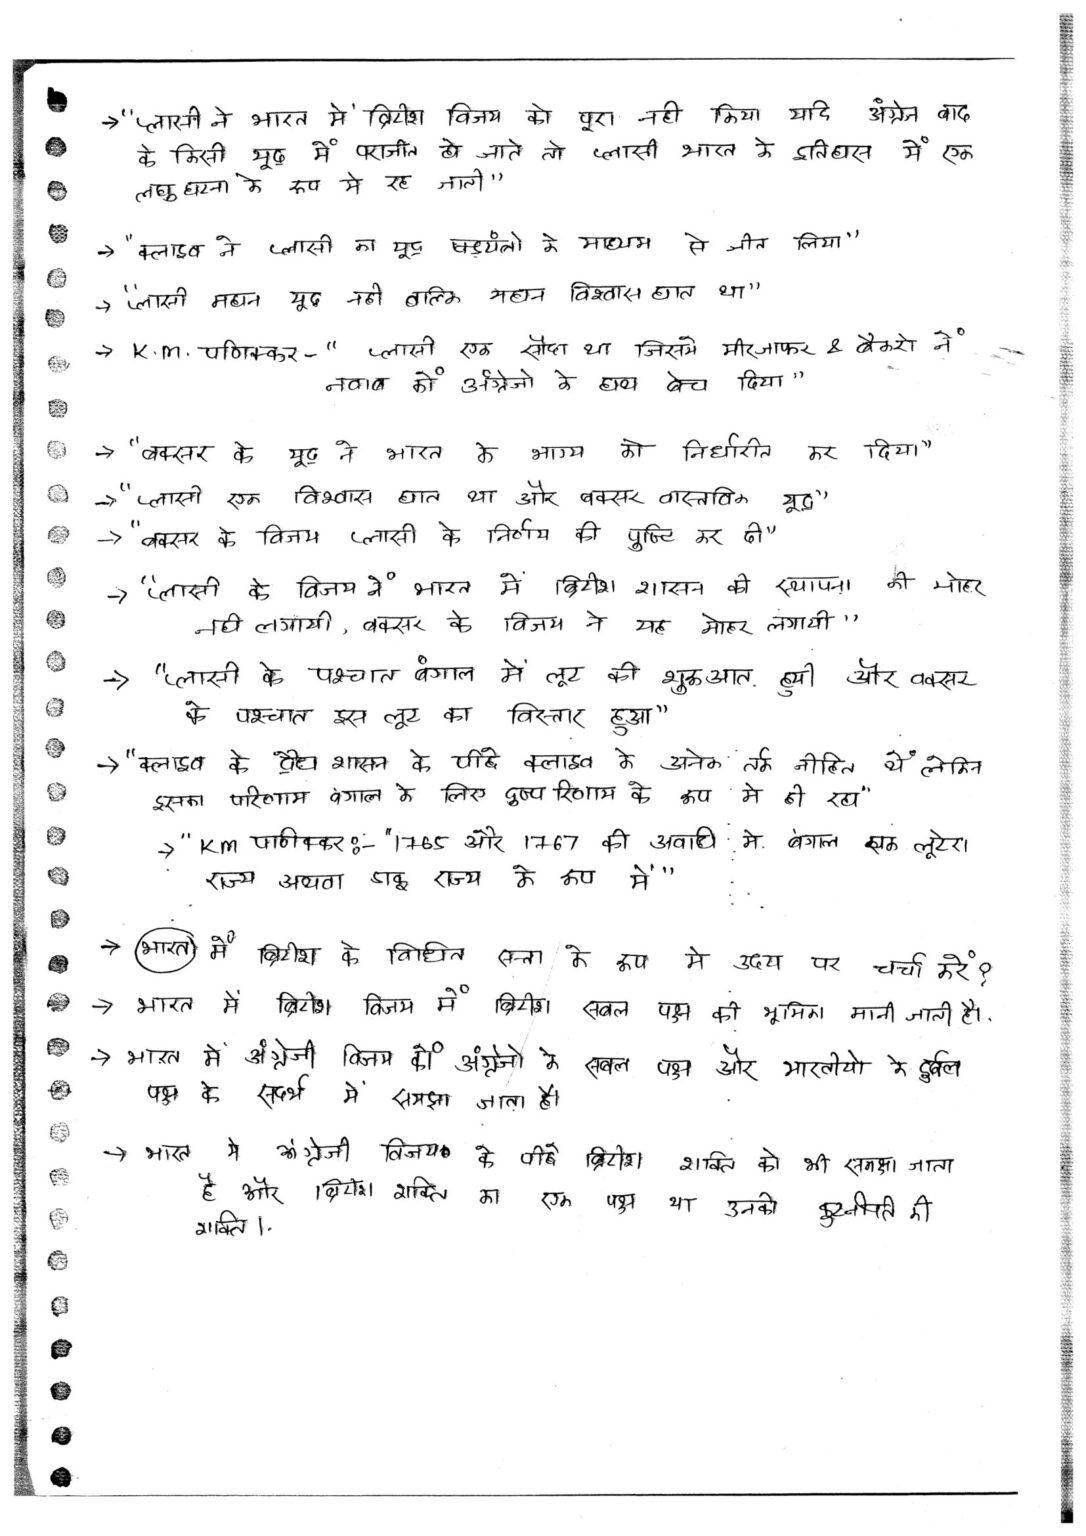 → "प्लासी ने भारत में ब्रिटीश विजय को पूरा नही किया यदि अंग्रेज बाद
के किसी यूद्ध में पराजीत हो जाते तो प्लासी भारत के इतिहास में एक
लघु घटना के रूप मे रह जाती"
→ "क्लाइव ने प्लासी का यूद्ध षड्यंतो के माध्यम से जीत लिया"
→ "प्लासी महान यूद्ध नही बल्कि महान विश्वास घात था"
→ K.M. पणिक्कर - " प्लासी एक सौदा था जिसमे मीरजाफर & बैंकरो नें
नवाब को अंग्रेजो के हाथ बेच दिया"
→ "बक्सर के यूद्ध ने भारत के भाग्य को निर्धारीत कर दिया।"
→ "प्लासी एक विश्वास घात था और बक्सर वास्तविक यूद्ध"
→ "बक्सर के विजय प्लासी के निर्णय की पुष्टि कर दी"
→ "प्लासी के विजय नें भारत में ब्रिटीश शासन की स्थापना की मोहर
नही लगायी, बक्सर के विजय ने यह मोहर लगायी"
→ "प्लासी के पश्चात बंगाल में लूट की शुरूआत हुयी और बक्सर
के पश्चात इस लूट का विस्तार हुआ"
→ "क्लाइव के द्वैध शासन के पीछे क्लाइव के अनेक तर्क नीहित थें लेकिन
इसका परिणाम बंगाल के लिए दुष्परिणाम के रूप मे ही रहा"
→ "KM पाणिक्कर :- "1765 और 1767 की अवधि मे बंगाल एक लूटेरा
राज्य अथवा डाकू राज्य के रूप में"
→ भारत में ब्रिटीश के विधित सत्ता के रूप मे उदय पर चर्चा करें?
→ भारत में ब्रिटीश विजय में ब्रिटीश सबल पक्ष की भूमिका मानी जाती है।
→ भारत में अंग्रेजी विजय को अंग्रेजो के सबल पक्ष और भारतीयो के दुर्बल
पक्ष के संदर्भ में समझा जाता है।
→ भारत मे अंग्रेजी विजय के पीछे ब्रिटीश शक्ति को भी समझा जाता
है और ब्रिटीश शक्ति का एक पक्ष था उनकी कुटनीति की
शक्ति।